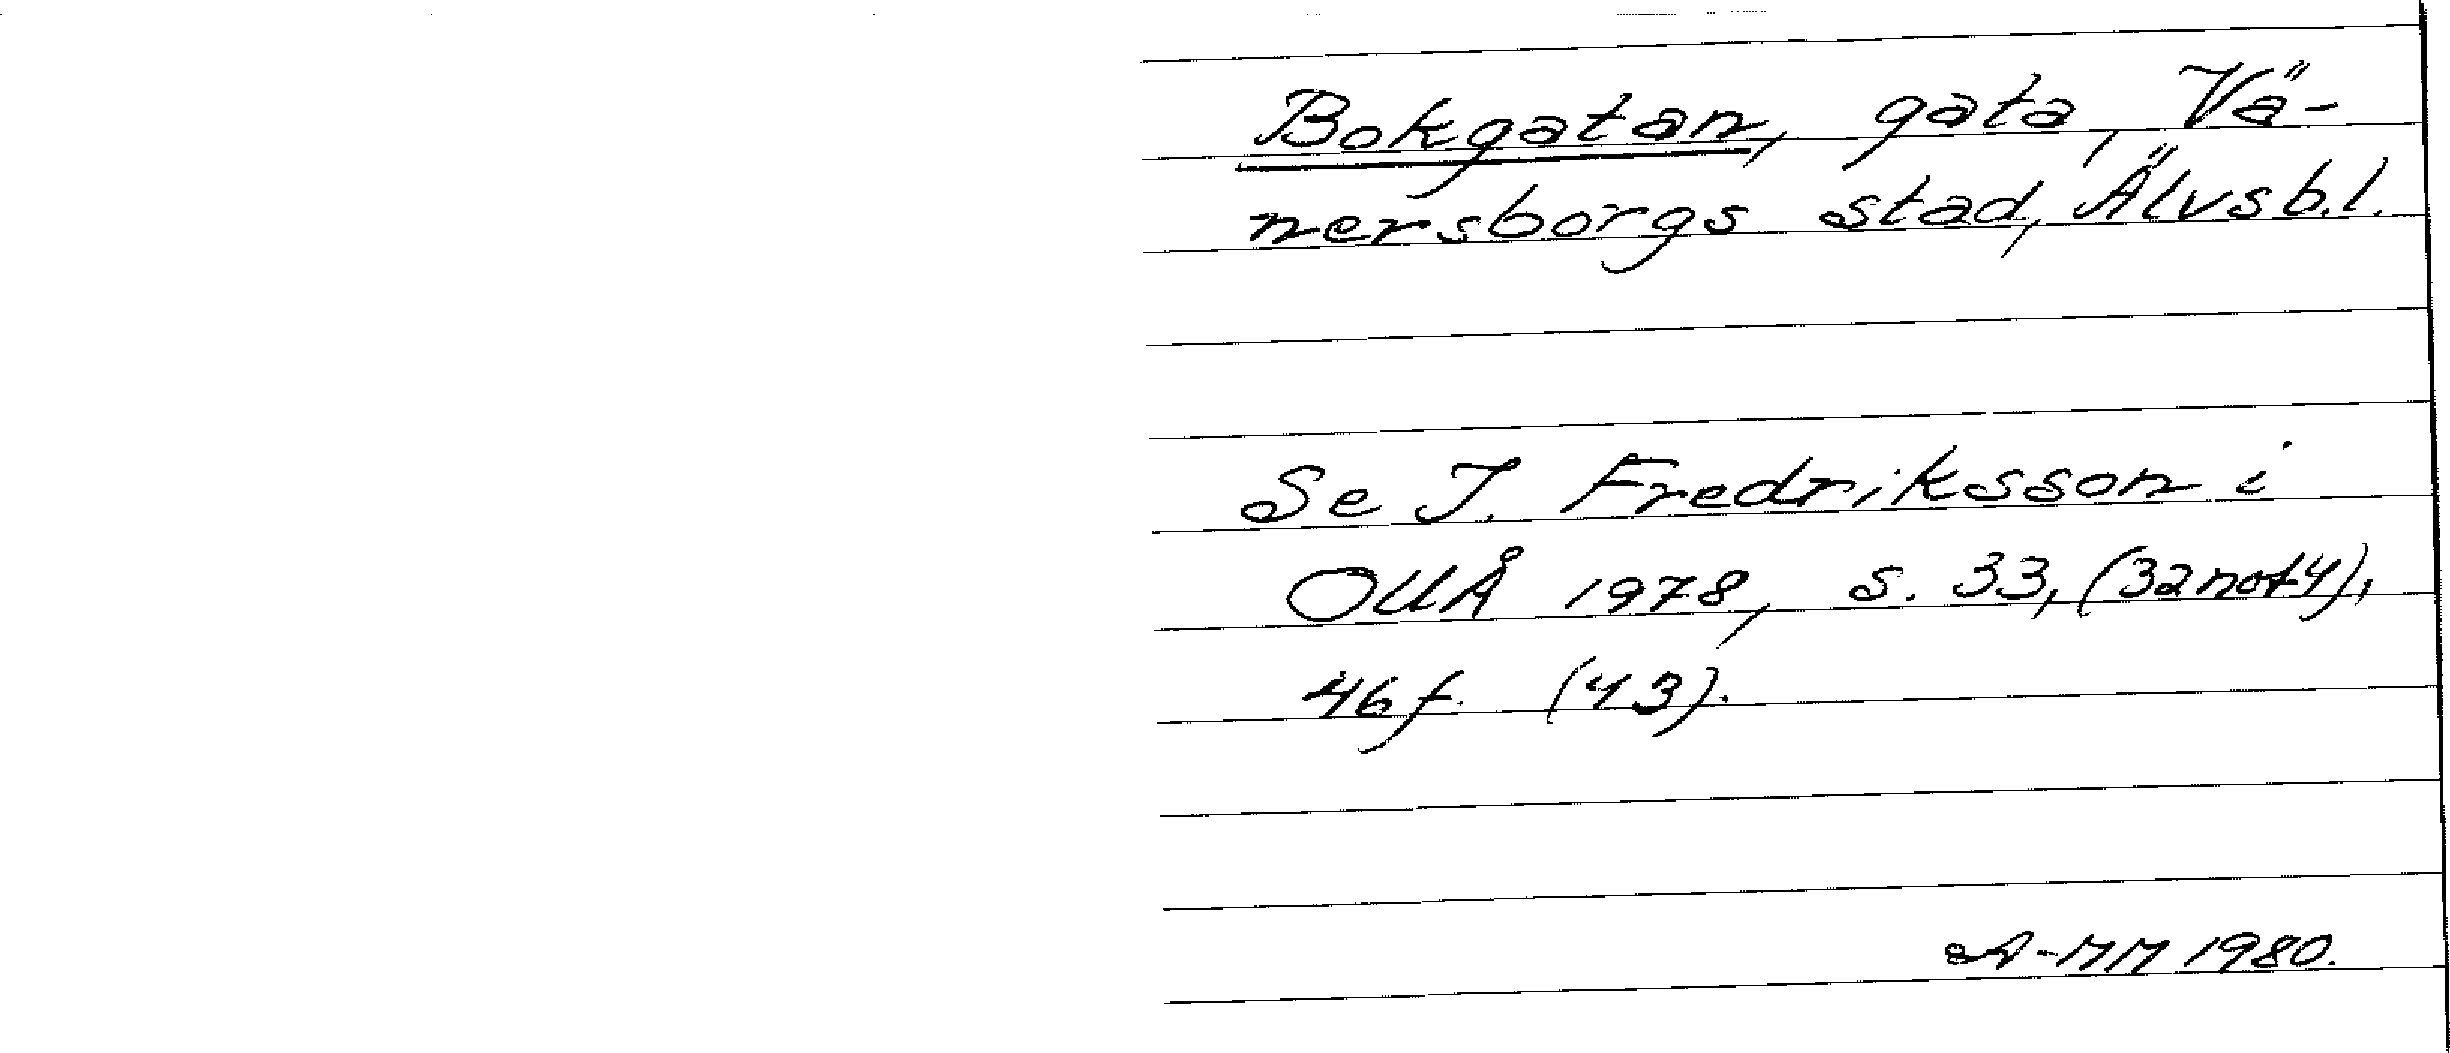 Bokgatan, gata, Vä-
nersborgs stad, Älvsb.l.
Se I. Fredriksson i
OUÅ 1978, s. 33, (32 not 4),
46 f. (43).
A-MM 1980.